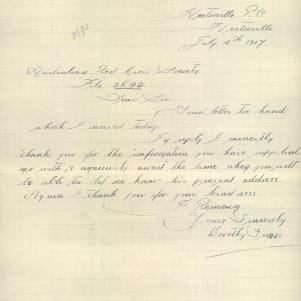 2892
July 12th 1917
Australian Red Cross Society
File 2892
Dear Sir
Your letter to hand
which I received today.
In reply I earnestly
thank you for the information you have supplied
me with, & anxiously await the time when you will
be able to let me have his present address.
Again I thank you for your kindness.
I Remain
Yours Sincerely
Dorothy